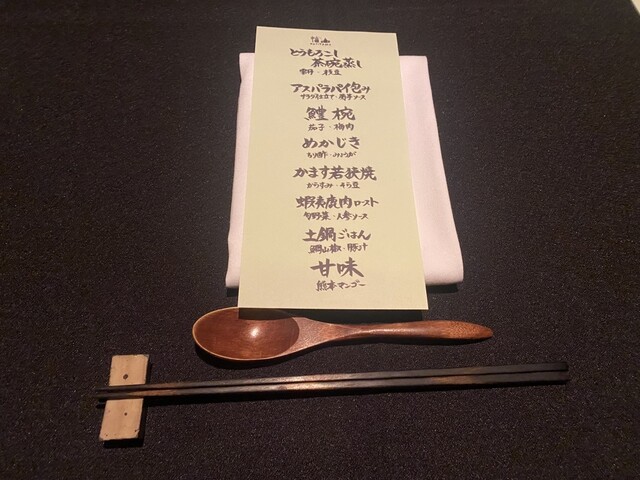 とうもろこし
茶碗蒸し
枝豆
アスパラパイ包み
サラダ仕立て・
鱧椀
茄子・梅肉
めかじき
みょうが
かます若狭焼
からすみ・そら豆
蝦夷鹿肉ロースト
旬野菜・人参ソース
土鍋ごはん
鯛山椒・豚汁
甘味
熊本マンゴー